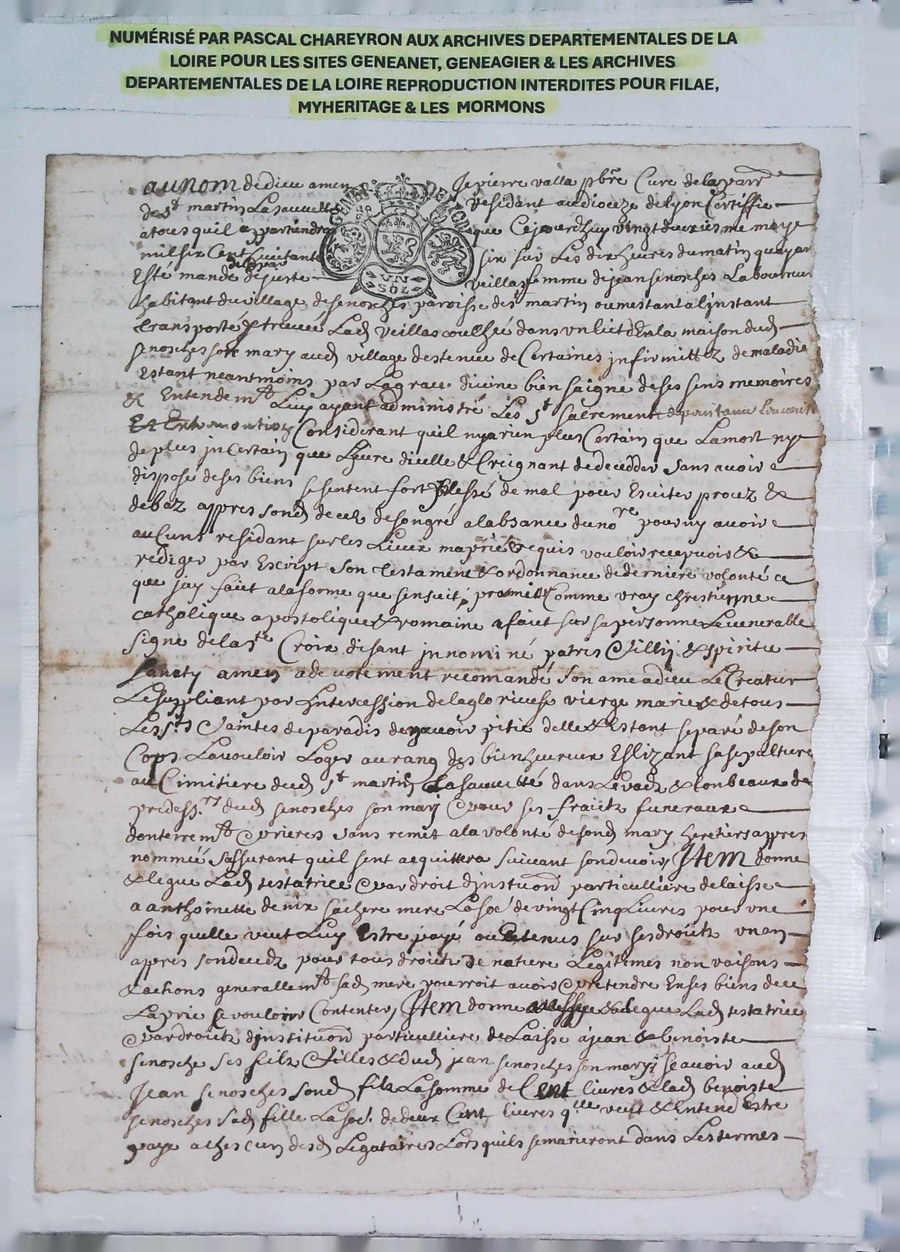 NUMÉRISÉ PAR PASCAL CHAREYRON AUX ARCHIVES DEPARTEMENTALES DE LA
LOIRE POUR LES SITES GENEANET, GENEAGIER & LES ARCHIVES
DEPARTEMENTALES DE LA LOIRE REPRODUCTION INTERDITES POUR FILAE,
MYHERITAGE & LES MORMONS
au nom de dieu amen Je pierre valla pbre Cure de la parr
de st martin Lasauvette residant au dioceze de lyon Certiffie
a tous quil appartiendra que Cejourdhuy vingt deuxiesme
mil six Cent huitante six sur Les dix heures du matin
Este mandé veillas femme de jean senosches Laboureur
habitant du village de senosches paroisse de st martin ou mestant a linstant
transporté & treuvée Lad veillas couchée dans un lict En la maison dud
senosches son mary aud village destenue de Certaines jnfirmittez de maladie
Estant neantmoins par La grace divine bien de ses sens memoires
& Entendemt Luy ayant administré Les st sacrements
Considerant quil ny a rien plus Certain que La mort ny
de plus jncertain que Lheure dicelle & Creignant de decedder sans avoir
disposé de ses biens se sentent fort de mal pour Esviter procez &
debaz appres son deces de son gré a labsance de nore pour ny avoir
aulcuns residant sur les Lieux requis vouloir recepvoir &
rediger par Escript son testament & ordonnance de derniere volonté ce
que jay faict a la forme que sensuit, Comme vray chrestienne
catholique apostolique & romaine a faict sur sa personne Le venerable
signe de la ste Croix disant jn nominé patris & fillij & spiritu
sancty amen a devotement recomandé son ame a dieu Le Createur
Le suppliant par Lintercession de la glorieuse vierge marie & de tous
Les sts & saintes de paradis de avoir pitié delle & Estant separé de son
Cops La vouloir Loger au rang des bienheureux Eslizant sa sepulture
au Cimitiere dud st martin Lasauvetté dans Le vaz & tonbeaux de
predessrs dud senosches son mary & pour ses fraictz funeraux
denterremt & prieres sans remit a la volonté de sond mary heretiers appres
nommé sasseurant quil sent acquittera suivant son debvoir, Item donne
& legue Lad testatrice & par droit djnstuon particulliere delaisse
a anthoinette sa chere mere La soe de vingt Cinq Livres pour une
fois quelle veut Luy Estre payé sur ses droictz un an
appres son decedz pour tous droictz de nature Legitimes
& actions generallemt sad mere pourroit avoir & pretendre En ses biens
La prie se vouloir Contenter, Item donne & legue Lad testatrice
& par droictz djnstituon particulliere deLaisse a jean & benoiste
senosche ses filz & filles & dud jean senosches son mary scavoir aud
Jean senosches sond filz La somme de Cent livres & lad benoiste
senosches sad fille La soe de deux Cent livres qlle veut & Entend Estre
paye a chescun desd Legataires Lorsquils se marieront dans Les termes